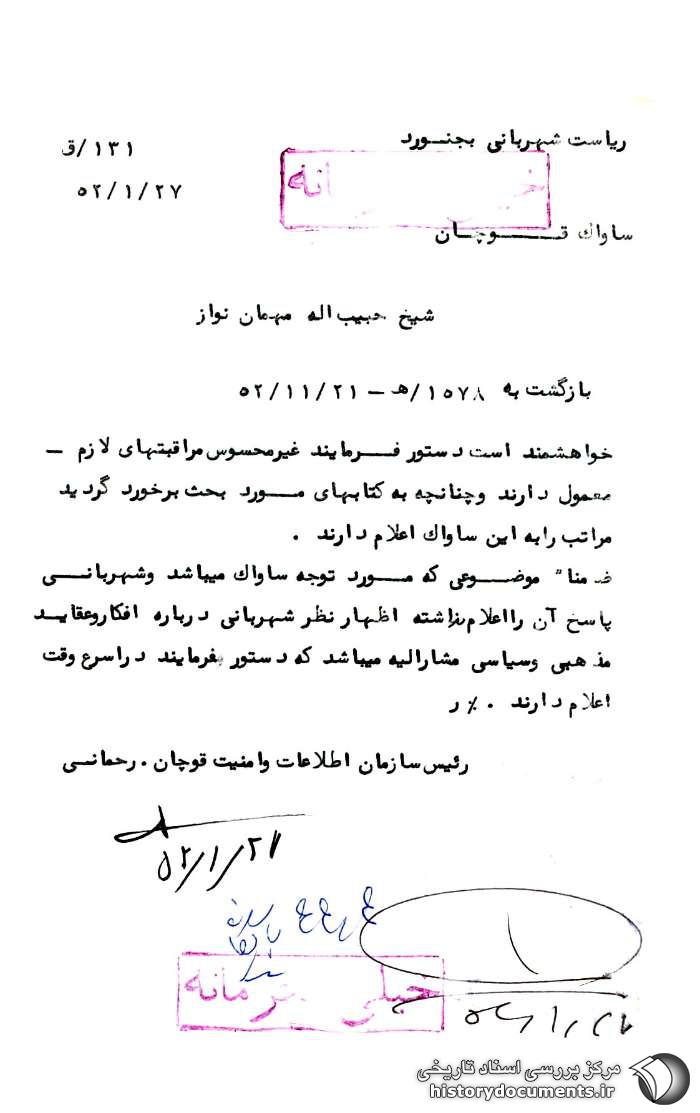 ریاست شهربانی بجنورد
۱۳۱/ق
۵۲/۱/۲۷
ساواك قوچان
شیخ حبیب اله مهمان نواز
بازگشت به ۱۵۷۸/هـ - ۵۲/۱۱/۲۱
خواهشمند است دستور فرمایند غیرمحسوس مراقبتهای لازم -
معمول دارند وچنانچه به کتابهای مورد بحث برخورد گردید
مراتب رابه این ساواك اعلام دارند .
ضمنا" موضوعی که مورد توجه ساواك میباشد وشهربانی
پاسخ آن رااعلام نداشته اظهار نظر شهربانی درباره افکاروعقاید
مذهبی وسیاسی مشارالیه میباشد که دستور بفرمایند دراسرع وقت
اعلام دارند . ٪ ر
رئیس سازمان اطلاعات وامنیت قوچان . رحمانی
۵۲/۱/۲۷
خیلی محرمانه
مرکز بررسی اسناد تاریخی
historydocuments.ir